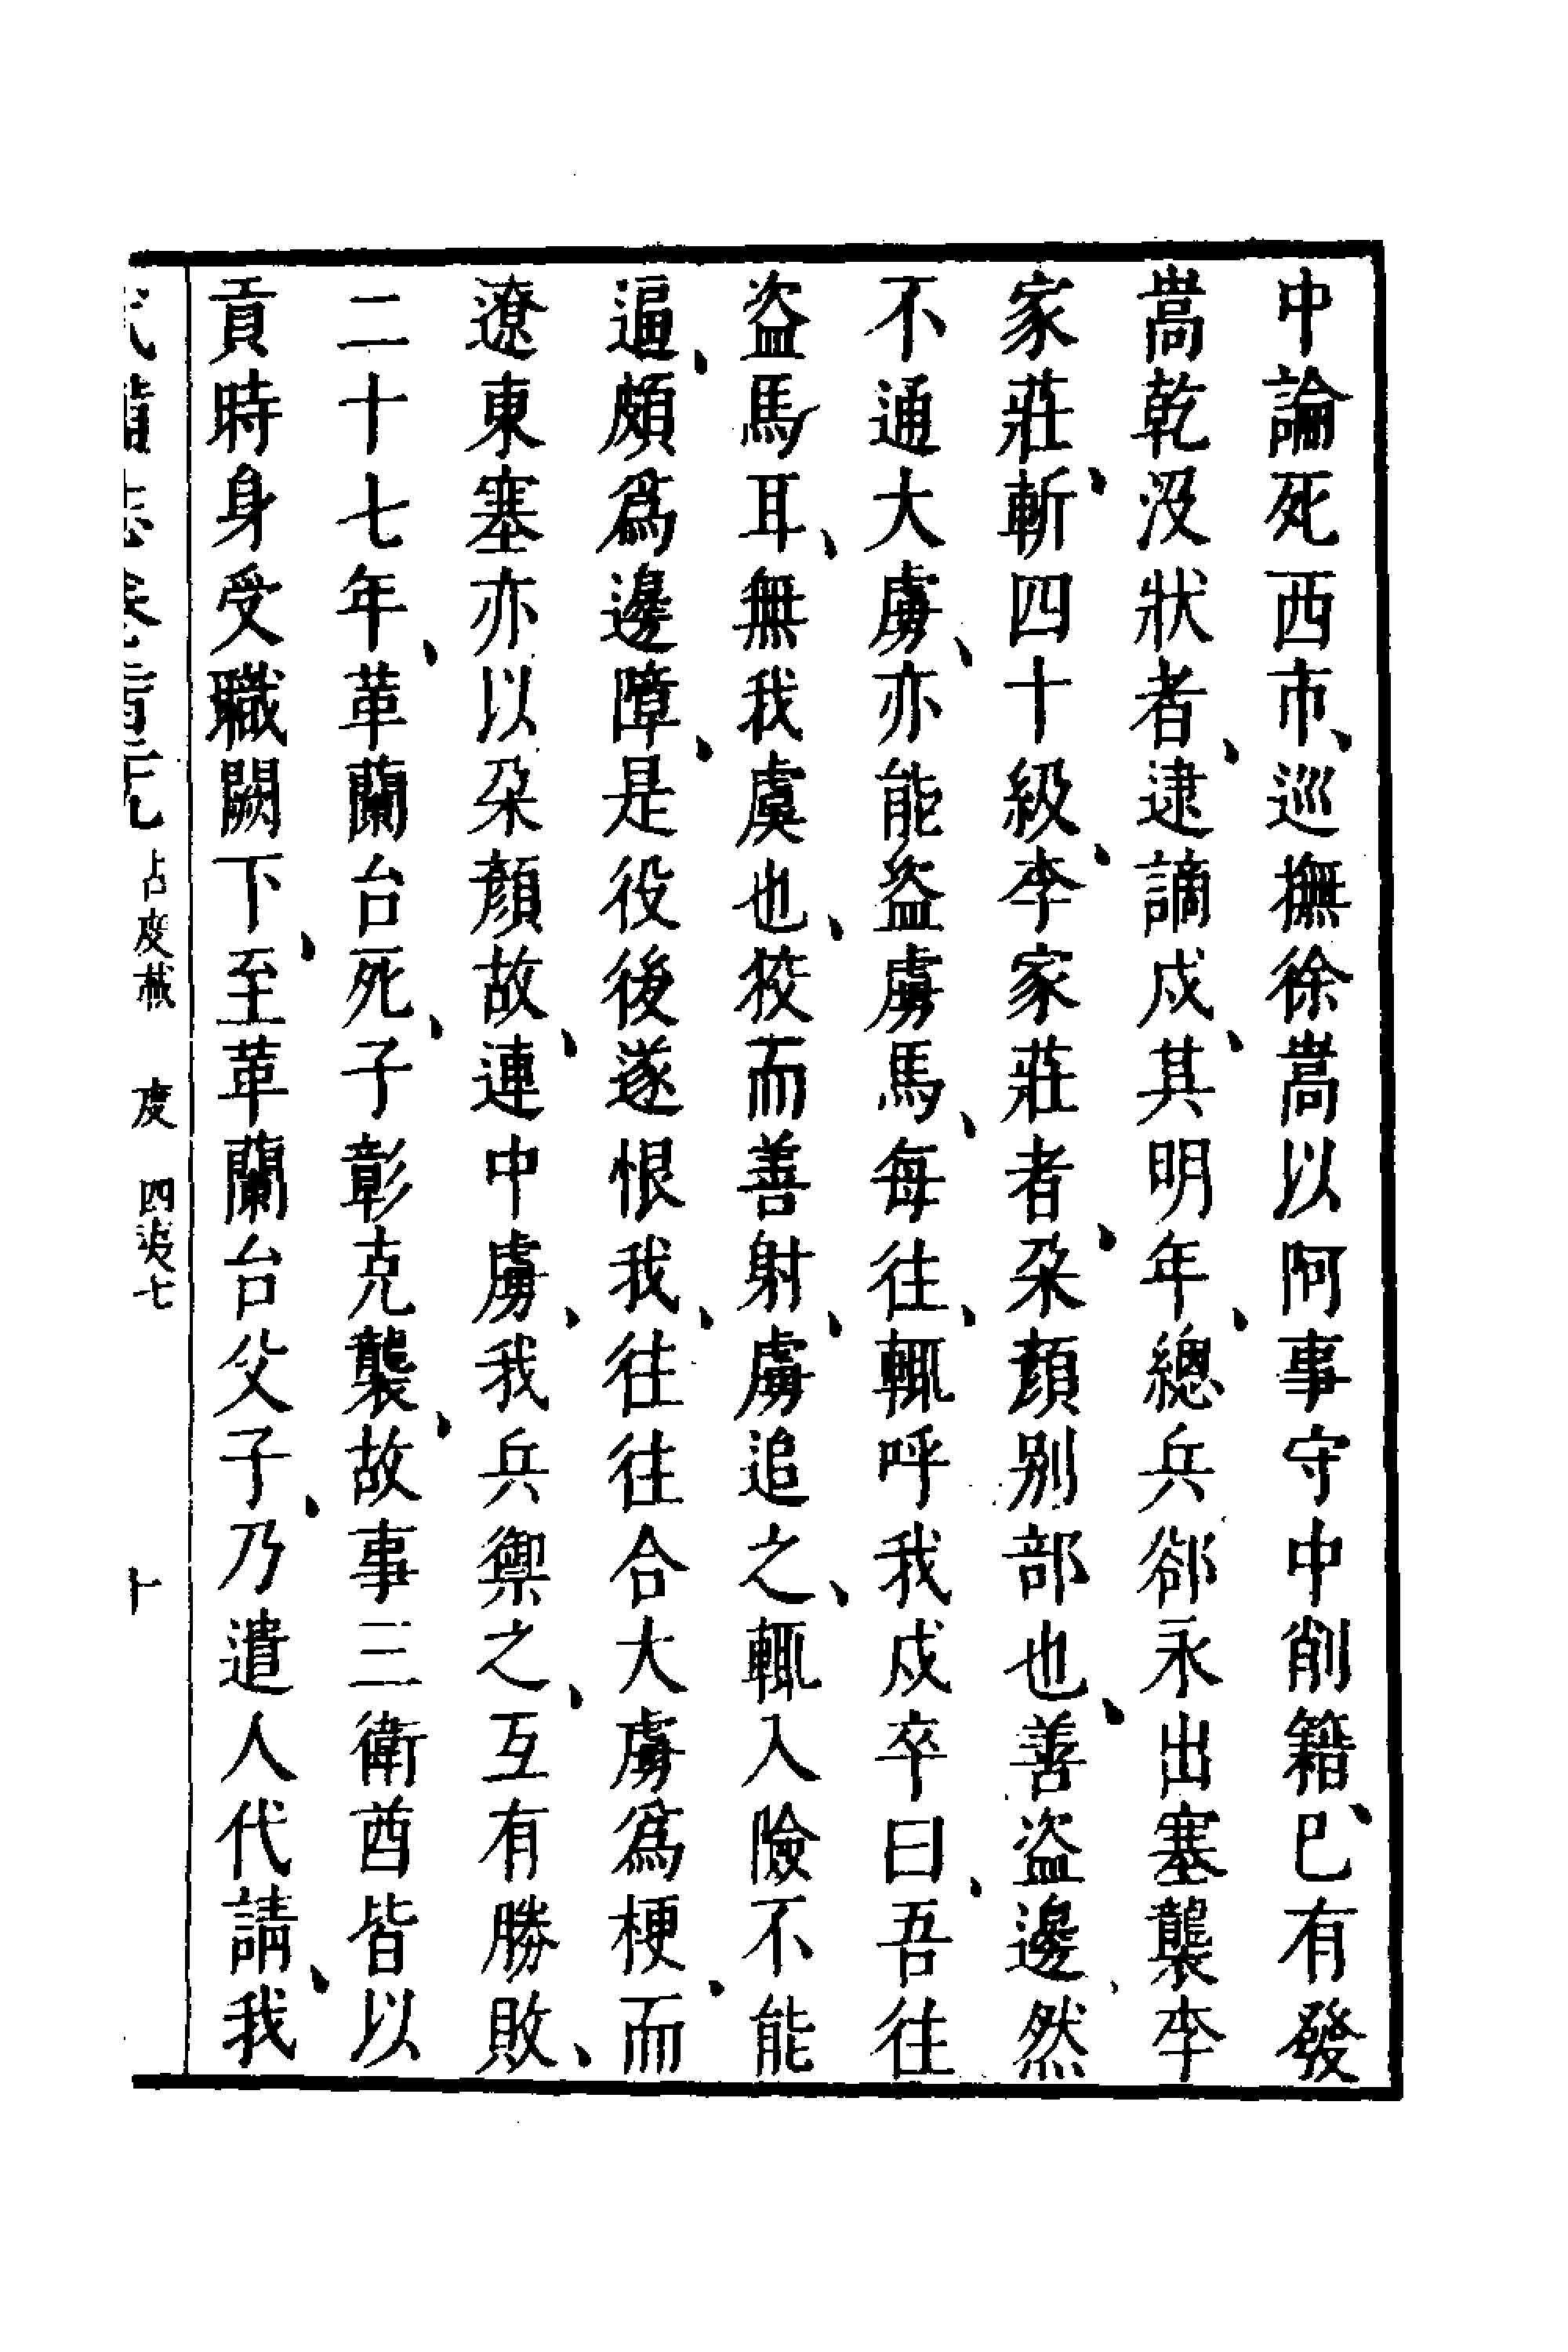 中論死西市、巡撫徐嵩以阿事守中削籍、巳有發
嵩乾沒狀者、逮謫戍、其明年、總兵郤永出塞襲李
家莊、斬四十級、李家莊者、朶顏别部也、善盜邊、然
不通大虜、亦能盜虜馬、每往、輒呼我戍卒曰、吾往
盜馬耳、無我虞也、狡而善射、虜追之、輒入險不能
逼、頗爲邊障、是役後遂恨我、往往合大虜爲梗、而
遼東塞亦以朶顏故、連中虜、我兵禦之、互有勝敗、
二十七年、革蘭台死、子彰克襲、故事三衛酋皆以
貢時身受職闕下、至革蘭台父子、乃遣人代請、我
占度載 度 四夷七 十